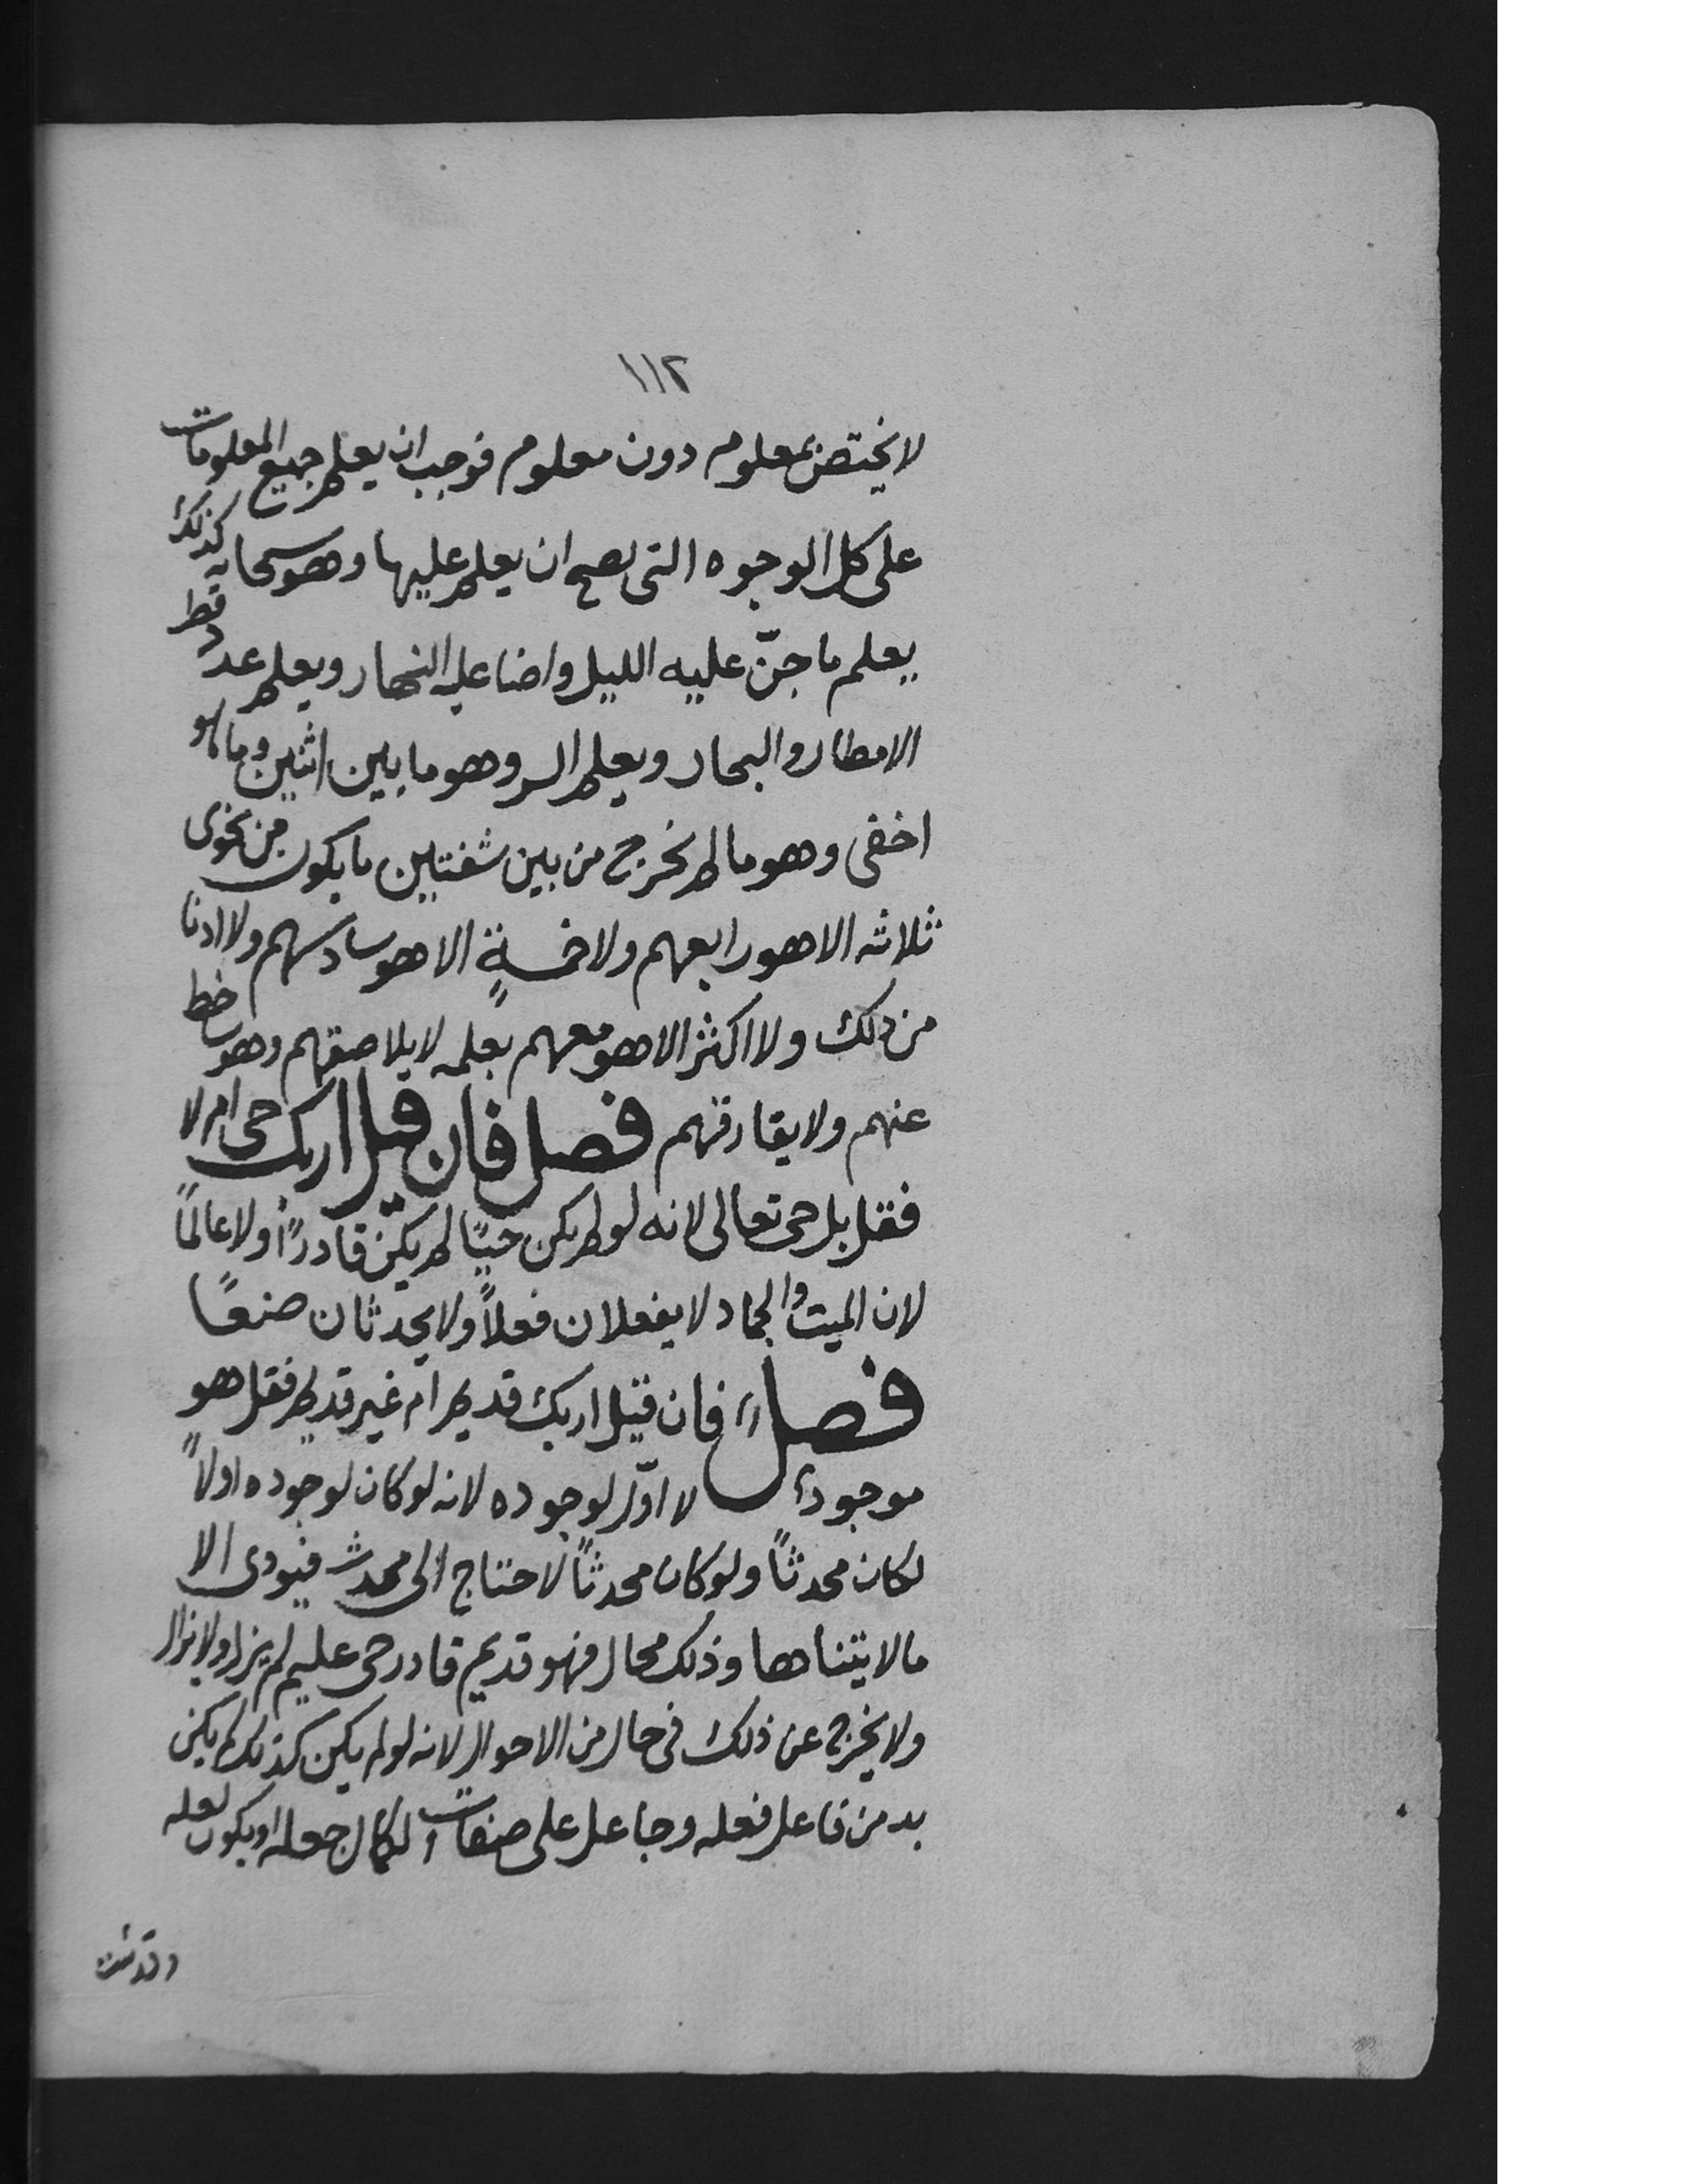 ١١٢
لا يختص بمعلوم دون معلوم فوجب ان يعلم جميع المعلومات
على كل الوجوه التى يصح ان يعلم عليها وهو سبحانه كذلك
يعلم ما جنّ عليه الليل واضا عليه النهار ويعلم عدد قطر
الامطار والبحار ويعلم السر وهو ما بين اثنين وما هو
اخفى وهو ما لم يخرج من بين شفتين ما يكون من نجوى
ثلاثه الا هو رابعهم ولا خمسةٍ الا هو سادسهم ولا ادنا
من ذلك ولا اكثر الا هو معهم بعلمه لا يلاصقهم وهو
عنهم ولا يفارقهم فصل فان قيل اربك حى ام لا
فقل بل حى تعالى لانه لو لم يكن حيًا لم يكن قادرًا ولا عالمًا
لان الميت والجماد لا يفعلان فعلاً ولا يحدثان صنعًا
فصل فان قيل اربك قديم ام غير قديم فقل هو
موجود لا اوّل لوجوده لانه لو كان لوجوده اولاً
لكان محدثاً ولو كان محدثاً لاحتاج الى محدث فيودى الا
ما لا يتناها وذلك محال فهو قديم قادر حى عليم لم يزل ولا يزال
ولا يخرج عن ذلك فى حال من الاحوال لانه لو لم يكن كذلك لم يكن
بد من فاعل فعله وجاعل على صفات الكمال جعله او يكون لعله
وقد ثبت